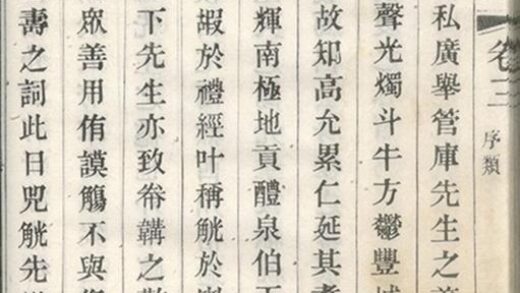 卷三 序類
私廣舉管庫先生之
聲光燭斗牛方鬱豐城
故知高允累仁延其
輝南極地貢醴泉伯
嘏於禮經叶稱觥於
下先生亦致帣韝之
眾善用侑謨觴不與
壽之詞此日兕觥先